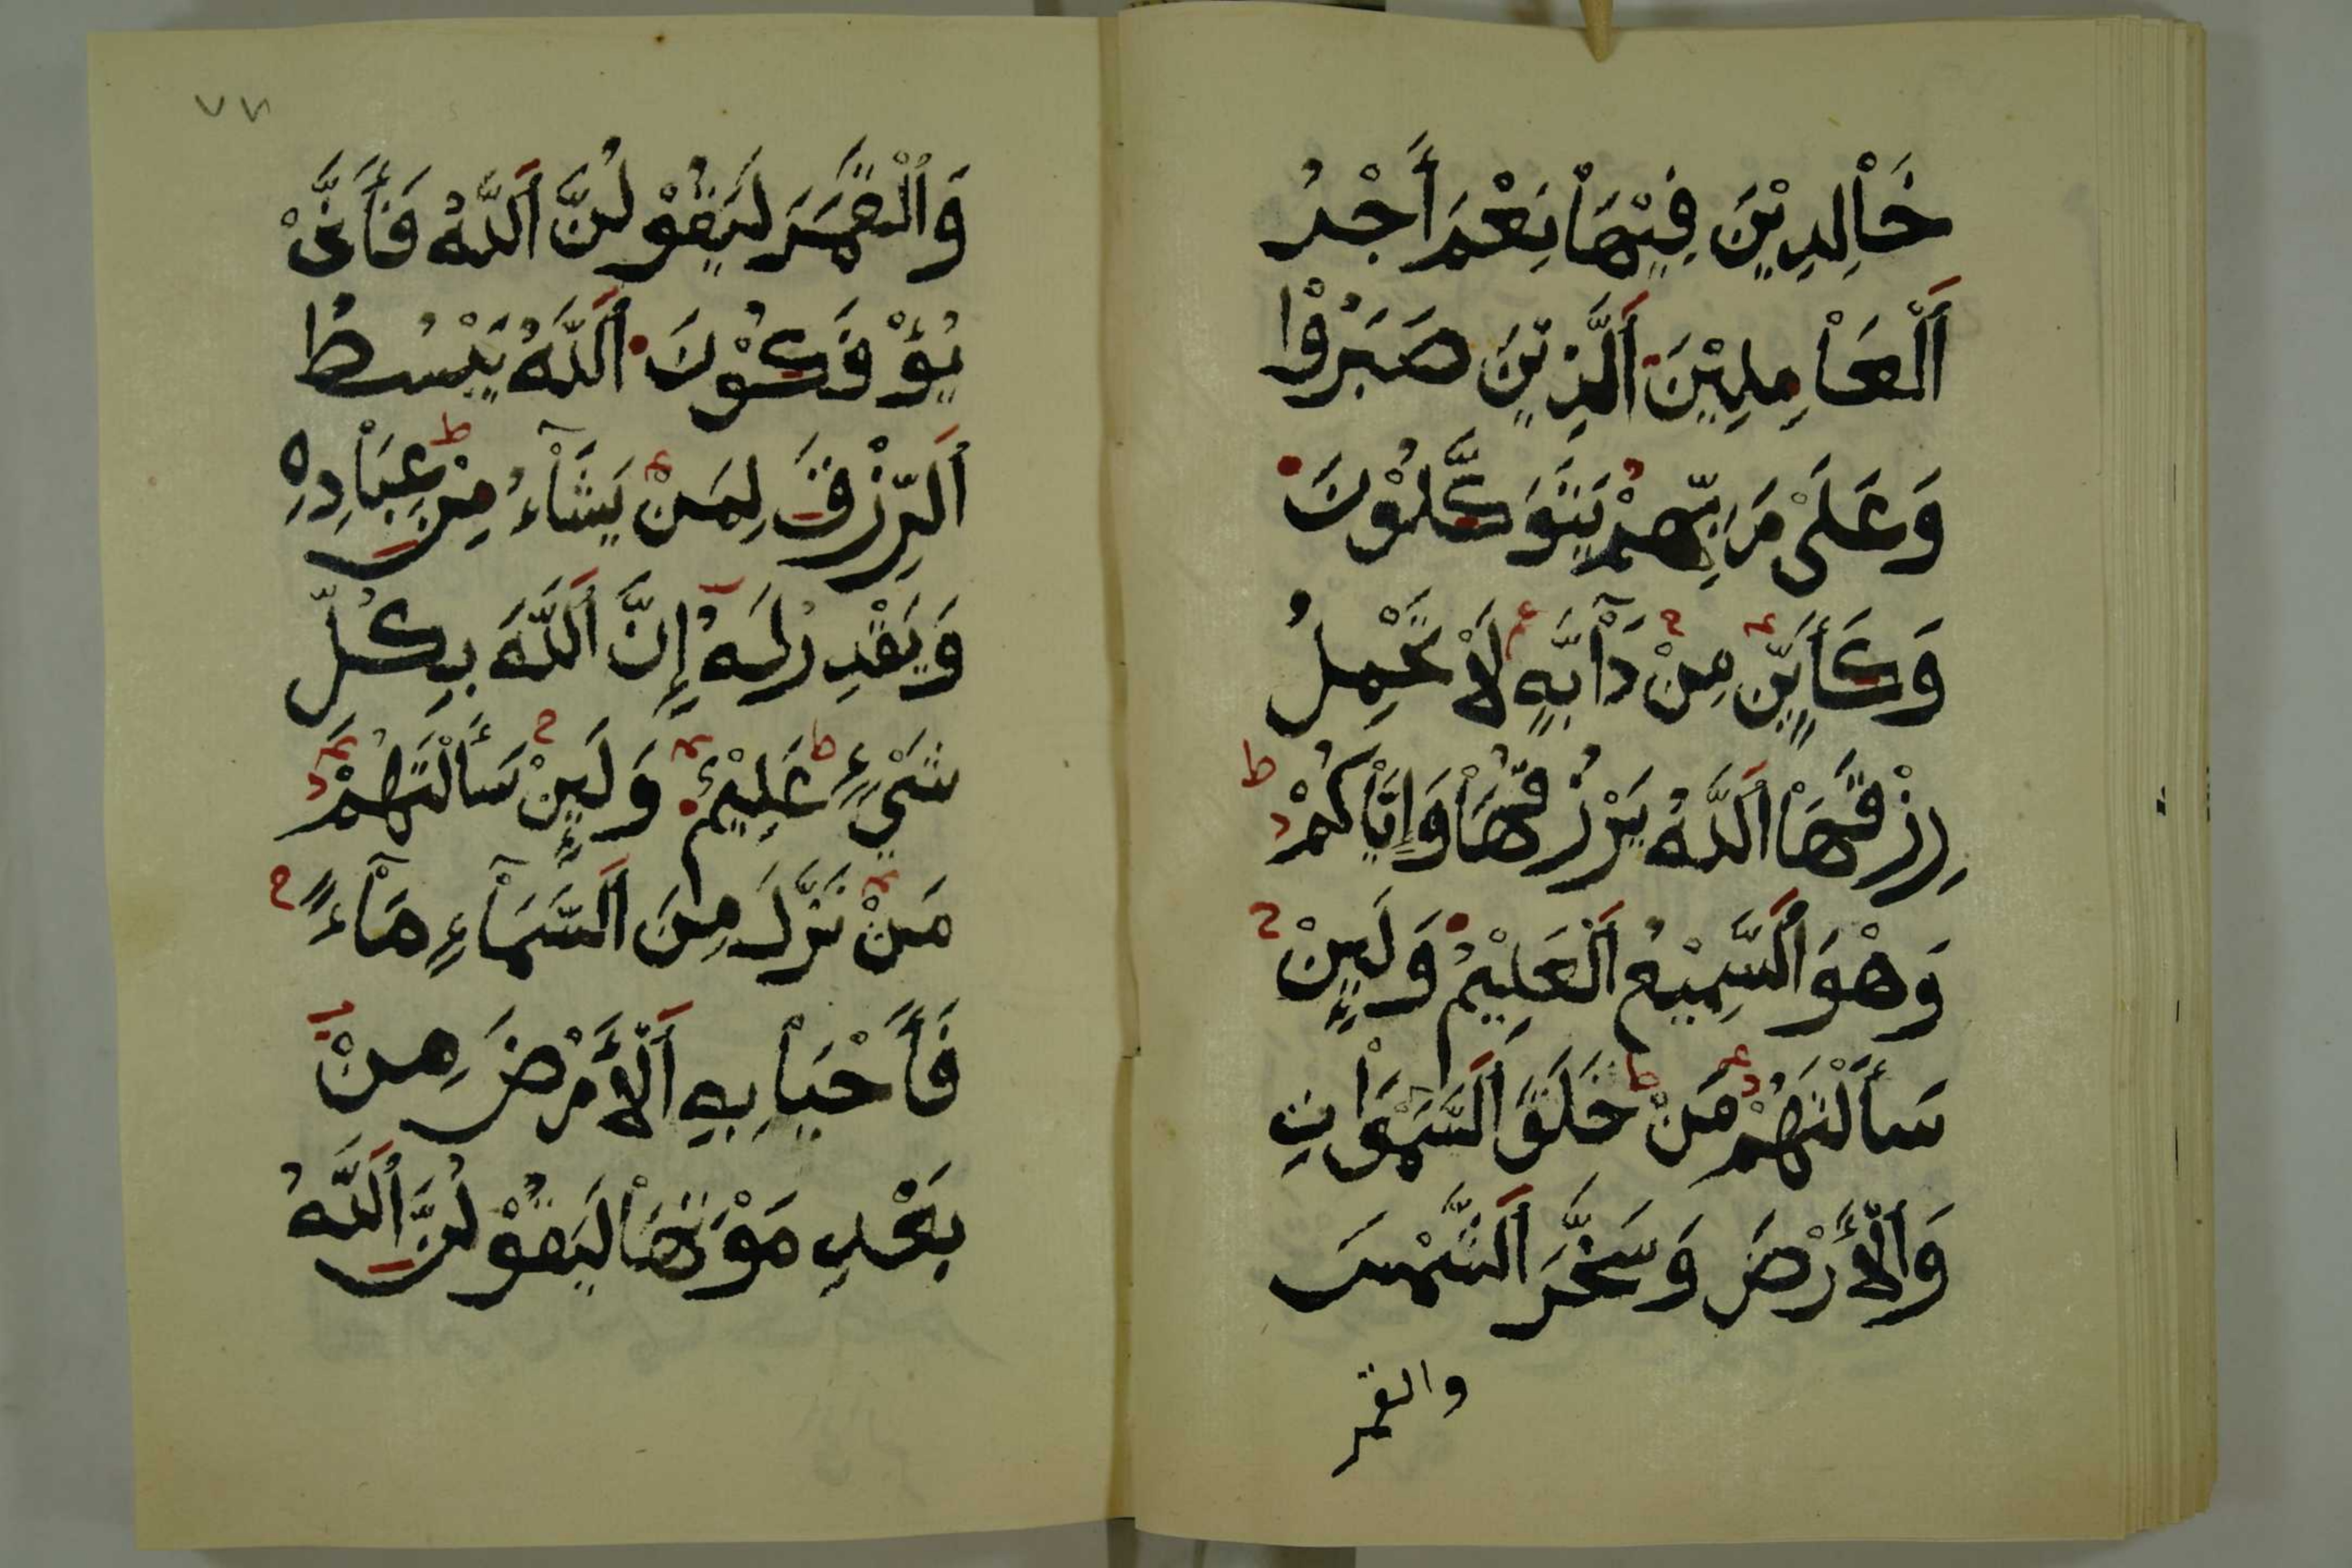 خَاْلِدِيْنَ فِيْهَاْ نِعْمَ أَجْرُ
اَلْعَاْمِلِيْنَ اَلَّذِيْنَ صَبَرُوْا
وَعَلَىْ رَبِّهِمْ يَتَوَكَّلُوْنَ
وَكَأَيِّنْ مِنْ دَآبَّةٍ لَاْ تَحْمِلُ
رِزْقَهَاْ اَللَّهُ يَرْزُقُهَاْ وَإِيَّاْكُمْ
وَهْوَ اَلسَّمِيْعُ اَلْعَلِيْمُ وَلَئِنْ
سَأَلْتَهُمْ مَنْ خَلَقَ اَلسَّمَوَاْتِ
وَاَلْأَرْضَ وَسَخَّرَ اَلشَّمْسَ
والقمر
٧٧
وَاَلْقَمَرَ لَيَقُوْلُنَّ اَللَّهُ فَأَنَّىْ
يُؤْفَكُوْنَ اَللَّهُ يَبْسُطُ
اَلرِّزْقَ لِمَنْ يَشَآءُ مِنْ عِبَاْدِهِ
وَيَقْدِرُ لَهُ إِنَّ اَللَّهَ بِكُلِّ
شَيْءٍ عَلِيْمٌ وَلَئِنْ سَأَلْتَهُمْ
مَنْ نَزَّلَ مِنَ اَلسَّمَآءِ مَآءً
فَأَحْيَاْ بِهِ اَلْأَرْضَ مِنْ
بَعْدِ مَوْتِهَاْ لَيَقُوْلُنَّ اَللَّهُ